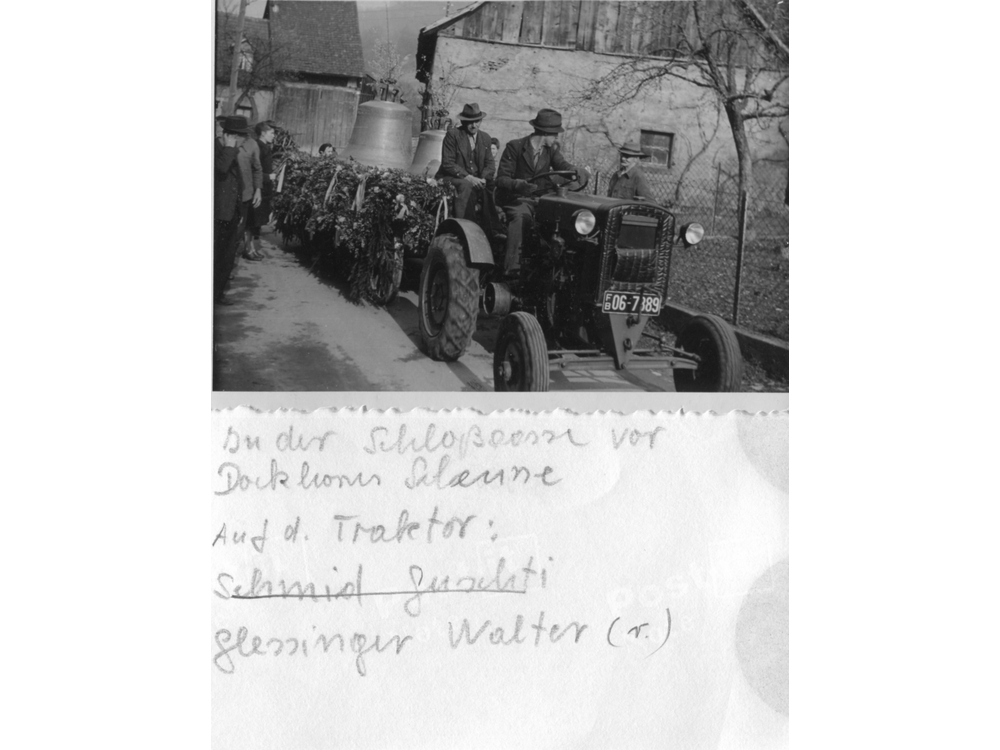 FB 06-7889
In der Schloßgasse vor
Dorkhorns Scheune
Auf d. Traktor:
Schmid Guschti
Glessinger Walter (r.)